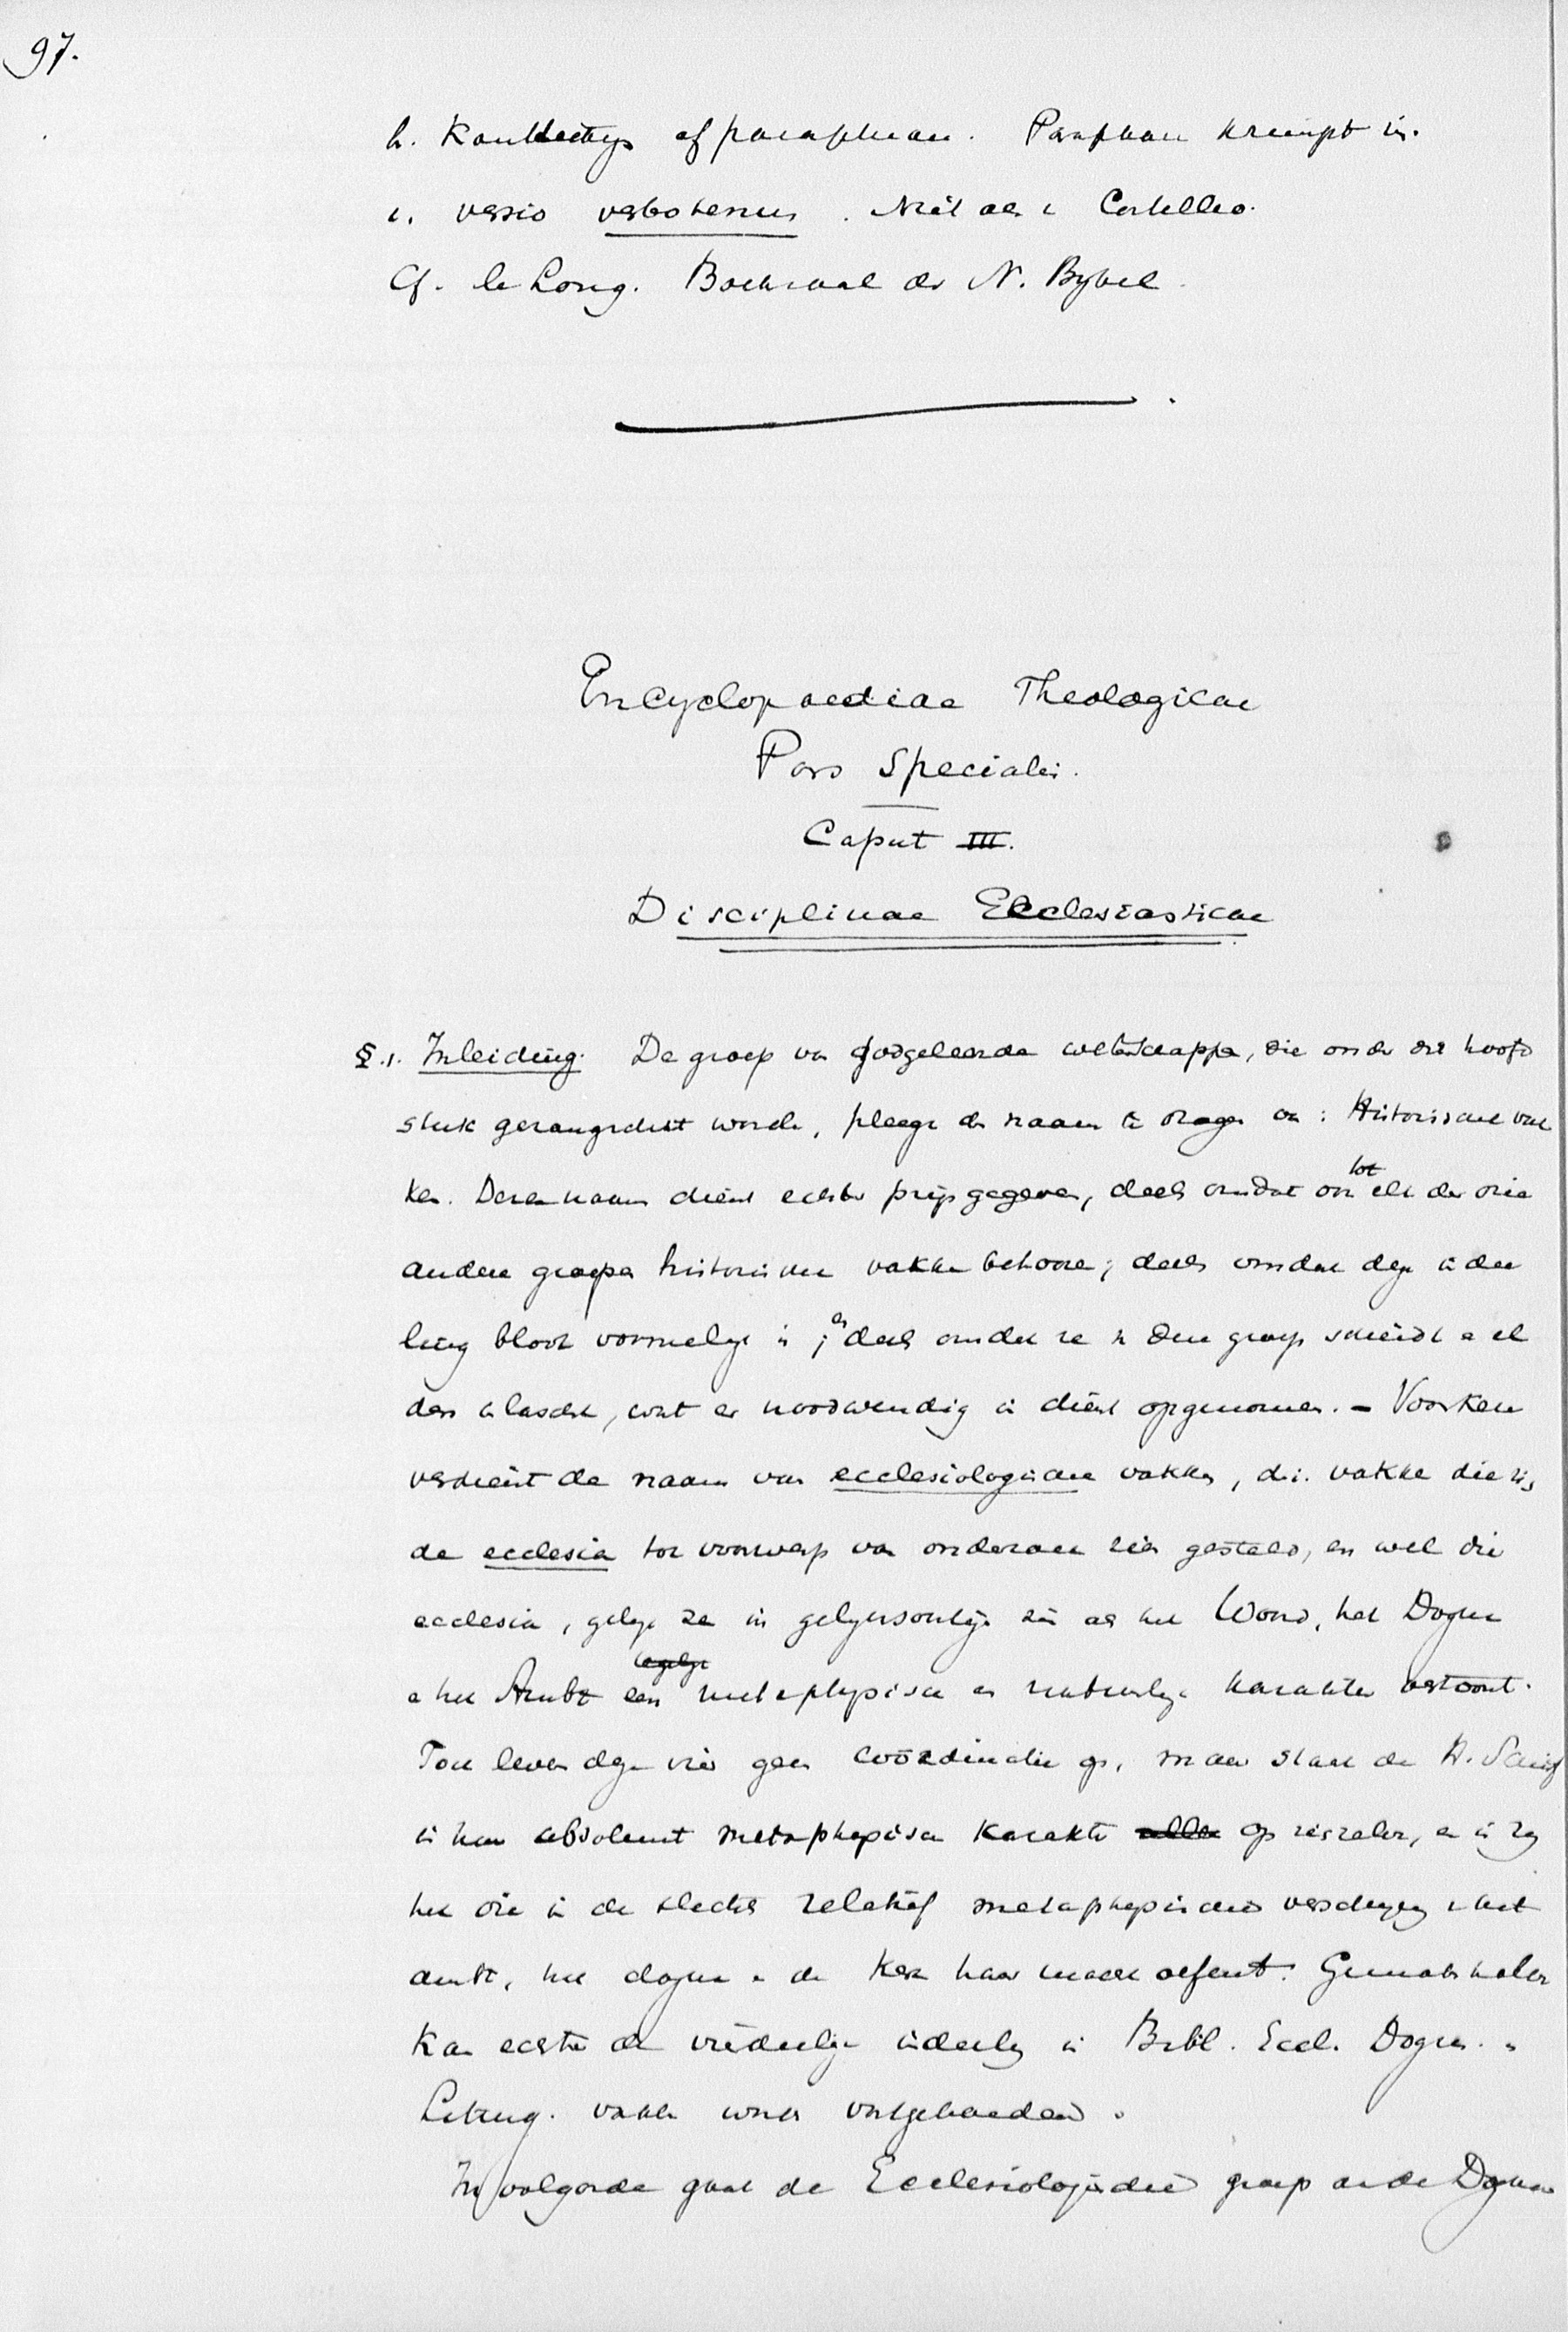 97.
h. Kantteekg of paraphrase. Paraphrase kruipt in.
i. versio verbotenus. Niet als i Castellio.
Cf. le Long. Boekzaal der N. Bybel.
Encyclopaediae Theologicae
Pars Specialis.
Caput III.
Disciplinae Ecclesiasticae
§.1. Inleiding. De groep van godgeleerde wetenschappe, die onder dit hoofd
stuk gerangschikt worde, pleegt de naam te drage van: Historische vak
ken. Deze naam dient echter prijsgegeven, deels omdat ook tot elk der drie
andere groepen historische vakken behoore; deels omdat deze indee
ling bloot vormelijk is; en deels omdat ze in deze groep scheidt e el
ders inlascht, wat er noodwendig in dient opgenomen. - Voorkeur
verdient de naam van ecclesiologische vakken, d.i. vakke die zich
de ecclesia tot voorwerp van onderzoek zien gesteld, en wel die
ecclesia, gelijk ze in gelijksoortige zin als het Woord, het Dogma
e het Ambt een metaphysisch en natuurlijk karakter vertoont.
Toch levere deze vier geen coördinatie op, maar staat de H. Schrift
in haar absoluut metaphysisch karakter op zichzelve, e is zij
het die in de slechts relatief metaphysische verschijning v. het
ambt, het dogma e de kerk haar macht oefent. Gemakshalve
kan echter de vierdeelige indeeling in Bibl. Eccl. Dogm. e
Liturg. vakke worde vastgehouden.
In volgorde gaat de Ecclesiologische groep aan de Dogma